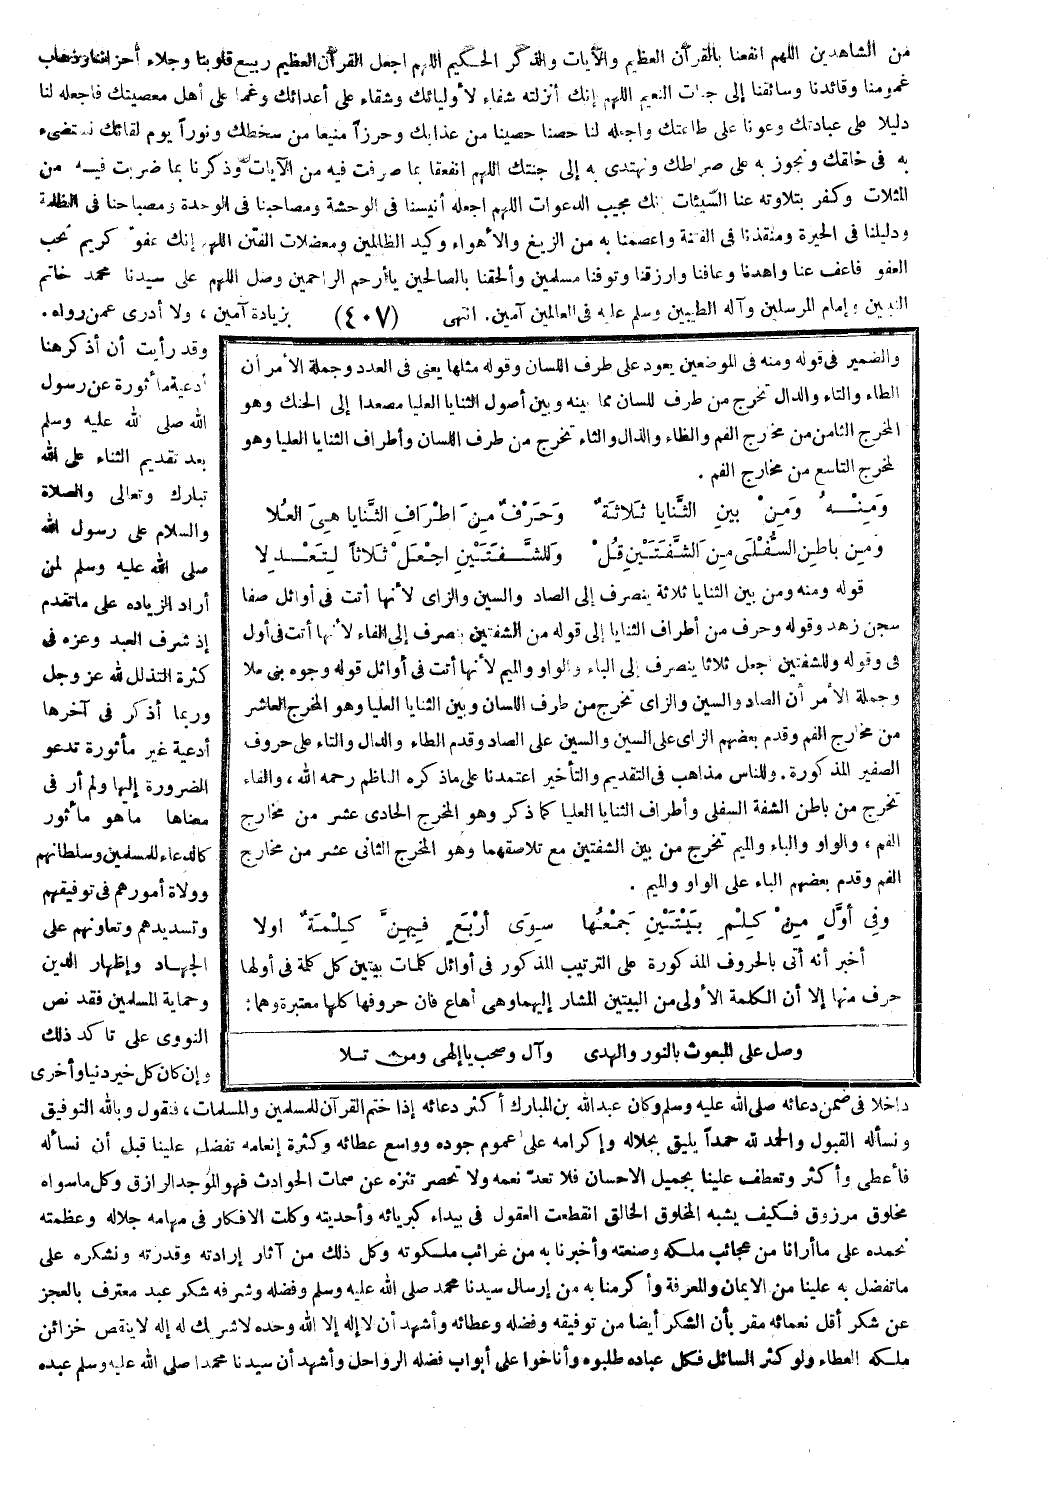 من الشاهدين اللهم انفعنا بالقرآن العظيم والآيات والذكر الحكيم اللهم اجعل القرآن العظيم ربيع قلوبنا وجلاء أحزاننا وذهاب
غمومنا وقائدنا وسائقنا إلى جنات النعيم اللهم إنك أنزلته شفاء لأوليائك وشقاء على أعدائك وغما على أهل معصيتك فاجعله لنا
دليلا على عبادتك وعونا على طاعتك واجعله لنا حصنا حصينا من عذابك وحرزاً منيعا من سخطك ونوراً يوم لقائك نستضىء
به فى خلقك ونجوز به على صراطك ونهتدى به إلى جنتك اللهم انفعنا بما صرفت فيه من الآيات وذكرنا بما ضربت فيه من
المثلات وكفر بتلاوته عنا السيئات إنك مجيب الدعوات اللهم اجعله أنيسنا فى الوحشة ومصاحبنا فى الوحدة ومصباحنا فى الظلمة
ودليلنا فى الحيرة ومنقذنا فى الفتنة واعصمنا به من الزيغ والأهواء وكيد الظالمين ومعضلات الفتن اللهم إنك عفو كريم تحب
العفو فاعف عنا واهدنا وعافنا وارزقنا وتوفنا مسلمين وألحقنا بالصالحين ياأرحم الراحمين وصل اللهم على سيدنا محمد خاتم
النبيين وإمام المرسلين وآله الطيبين وسلم عليه فى العالمين آمين. انتهى (٤٠٧) بزيادة آمين ، ولا أدرى عمن رواه.
وقد رأيت أن أذكر هنا
أدعية مأثورة عن رسول
الله صلى الله عليه وسلم
بعد تقديم الثناء على الله
تبارك وتعالى والصلاة
والسلام على رسول الله
صلى الله عليه وسلم لمن
أراد الزياده على ماتقدم
إذ شرف العبد وعزه فى
كثرة التذلل لله عز وجل
وربما أذكر فى آخرها
أدعية غير مأثورة تدعو
الضرورة إليها ولم أر فى
معناها ماهو مأثور
كالدعاء للمسلمين وسلطانهم
وولاة أمورهم فى توفيقهم
وتسديدهم وتعاونهم على
الجهاد وإظهار الدين
وحماية المسلمين فقد نص
النووى على تأكد ذلك
وإن كان كل خير دنيا وأخرى
والضمير فى قوله ومنه فى الموضعين يعود على طرف اللسان وقوله مثلها يعنى فى العدد وجملة الأمر أن
الطاء والتاء والدال تخرج من طرف للسان مما بينه وبين أصول الثنايا العليا مصعدا إلى الحنك وهو
المخرج الثامن من مخارج الفم والظاء والذال والثاء تخرج من طرف اللسان وأطراف الثنايا العليا وهو
المخرج التاسع من مخارج الفم .
وَمِنْهُ وَمِنْ بينِ الثَّنايا ثَلاثَةٌ وَحَرْفٌ مِنَ اطْرَافِ الثَّنايا هِىَ العُلا
وَمِن باطِنِ السُّفْلَى مِنَ الشَّفَتَيْنِ قُلْ وَللشَّفَتَيْنِ اجْعَلْ ثَلاثاً لِتَعْدِلا
قوله ومنه ومن بين الثنايا ثلاثة ينصرف إلى الصاد والسين والزاى لأنها أتت فى أوائل صفا
سجن زهد وقوله وحرف من أطراف الثنايا إلى قوله من الشفتين ينصرف إلى الفاء لأنها أتت فى أول
فى وقوله وللشفتين اجعل ثلاثا ينصرف إلى الباء والواو والميم لأنها أتت فى أوائل قوله وجوه بنى ملا
وجملة الأمر أن الصاد والسين والزاى تخرج من طرف اللسان وبين الثنايا العليا وهو المخرج العاشر
من مخارج الفم وقدم بعضهم الزاى على السين والسين على الصاد وقدم الظاء والذال والثاء على حروف
الصفير المذكورة . وللناس مذاهب فى التقديم والتأخير اعتمدنا على ماذكره الناظم رحمه الله ، والفاء
تخرج من باطن الشفة السفلى وأطراف الثنايا العليا كما ذكر وهو المخرج الحادى عشر من مخارج
الفم ، والواو والباء والميم تخرج من بين الشفتين مع تلاصقهما وهو المخرج الثانى عشر من مخارج
الفم وقدم بعضهم الباء على الواو والميم .
وَفِى أوَّلٍ مِنْ كِلْمِ بَيْتَيْنِ جَمْعُها سِوَى أرْبَعٍ فِيهِنَّ كِلْمَةٌ اولا
أخبر أنه أتى بالحروف المذكورة على الترتيب المذكور فى أوائل كلمات بيتين كل كلمة فى أولها
حرف منها إلا أن الكلمة الأولى من البيتين المشار إليهما وهى أهاع فان حروفها كلها معتبرة وهما:
وصل على المبعوث بالنور والهدى وآل وصحب يا إلهى ومن تلا
داخلا فى ضمن دعائه صلى الله عليه وسلم وكان عبد الله بن المبارك أكثر دعائه إذا ختم القرآن للمسلمين والمسلمات ، فنقول وبالله التوفيق
ونسأله القبول والحمد لله حمداً يليق بجلاله وإكرامه على عموم جوده وواسع عطائه وكثرة إنعامه تفضل علينا قبل أن نسأله
فأعطى وأكثر وتعطف علينا بجميل الاحسان فلا تعد نعمه ولا تحصر تنزه عن سمات الحوادث فهو الموجد الرازق وكل ماسواه
مخلوق مرزوق فكيف يشبه المخلوق الخالق انقطعت العقول فى بيداء كبريائه وأحديته وكلت الافكار فى مهامه جلاله وعظمته
نحمده على ماأرانا من عجائب ملكه وصنعته وأخبرنا به من غرائب ملكوته وكل ذلك من آثار إرادته وقدرته ونشكره على
ماتفضل به علينا من الايمان والمعرفة وأكرمنا به من إرسال سيدنا محمد صلى الله عليه وسلم وفضله وشرفه شكر عبد معترف بالعجز
عن شكر أقل نعمائه مقر بأن الشكر أيضا من توفيقه وفضله وعطائه وأشهد أن لاإله إلا الله وحده لاشريك له إله لاينقص خزائن
ملكه العطاء ولو كثر السائل فكل عباده طلبوه وأناخوا على أبواب فضله الرواحل وأشهد أن سيدنا محمدا صلى الله عليه وسلم عبده